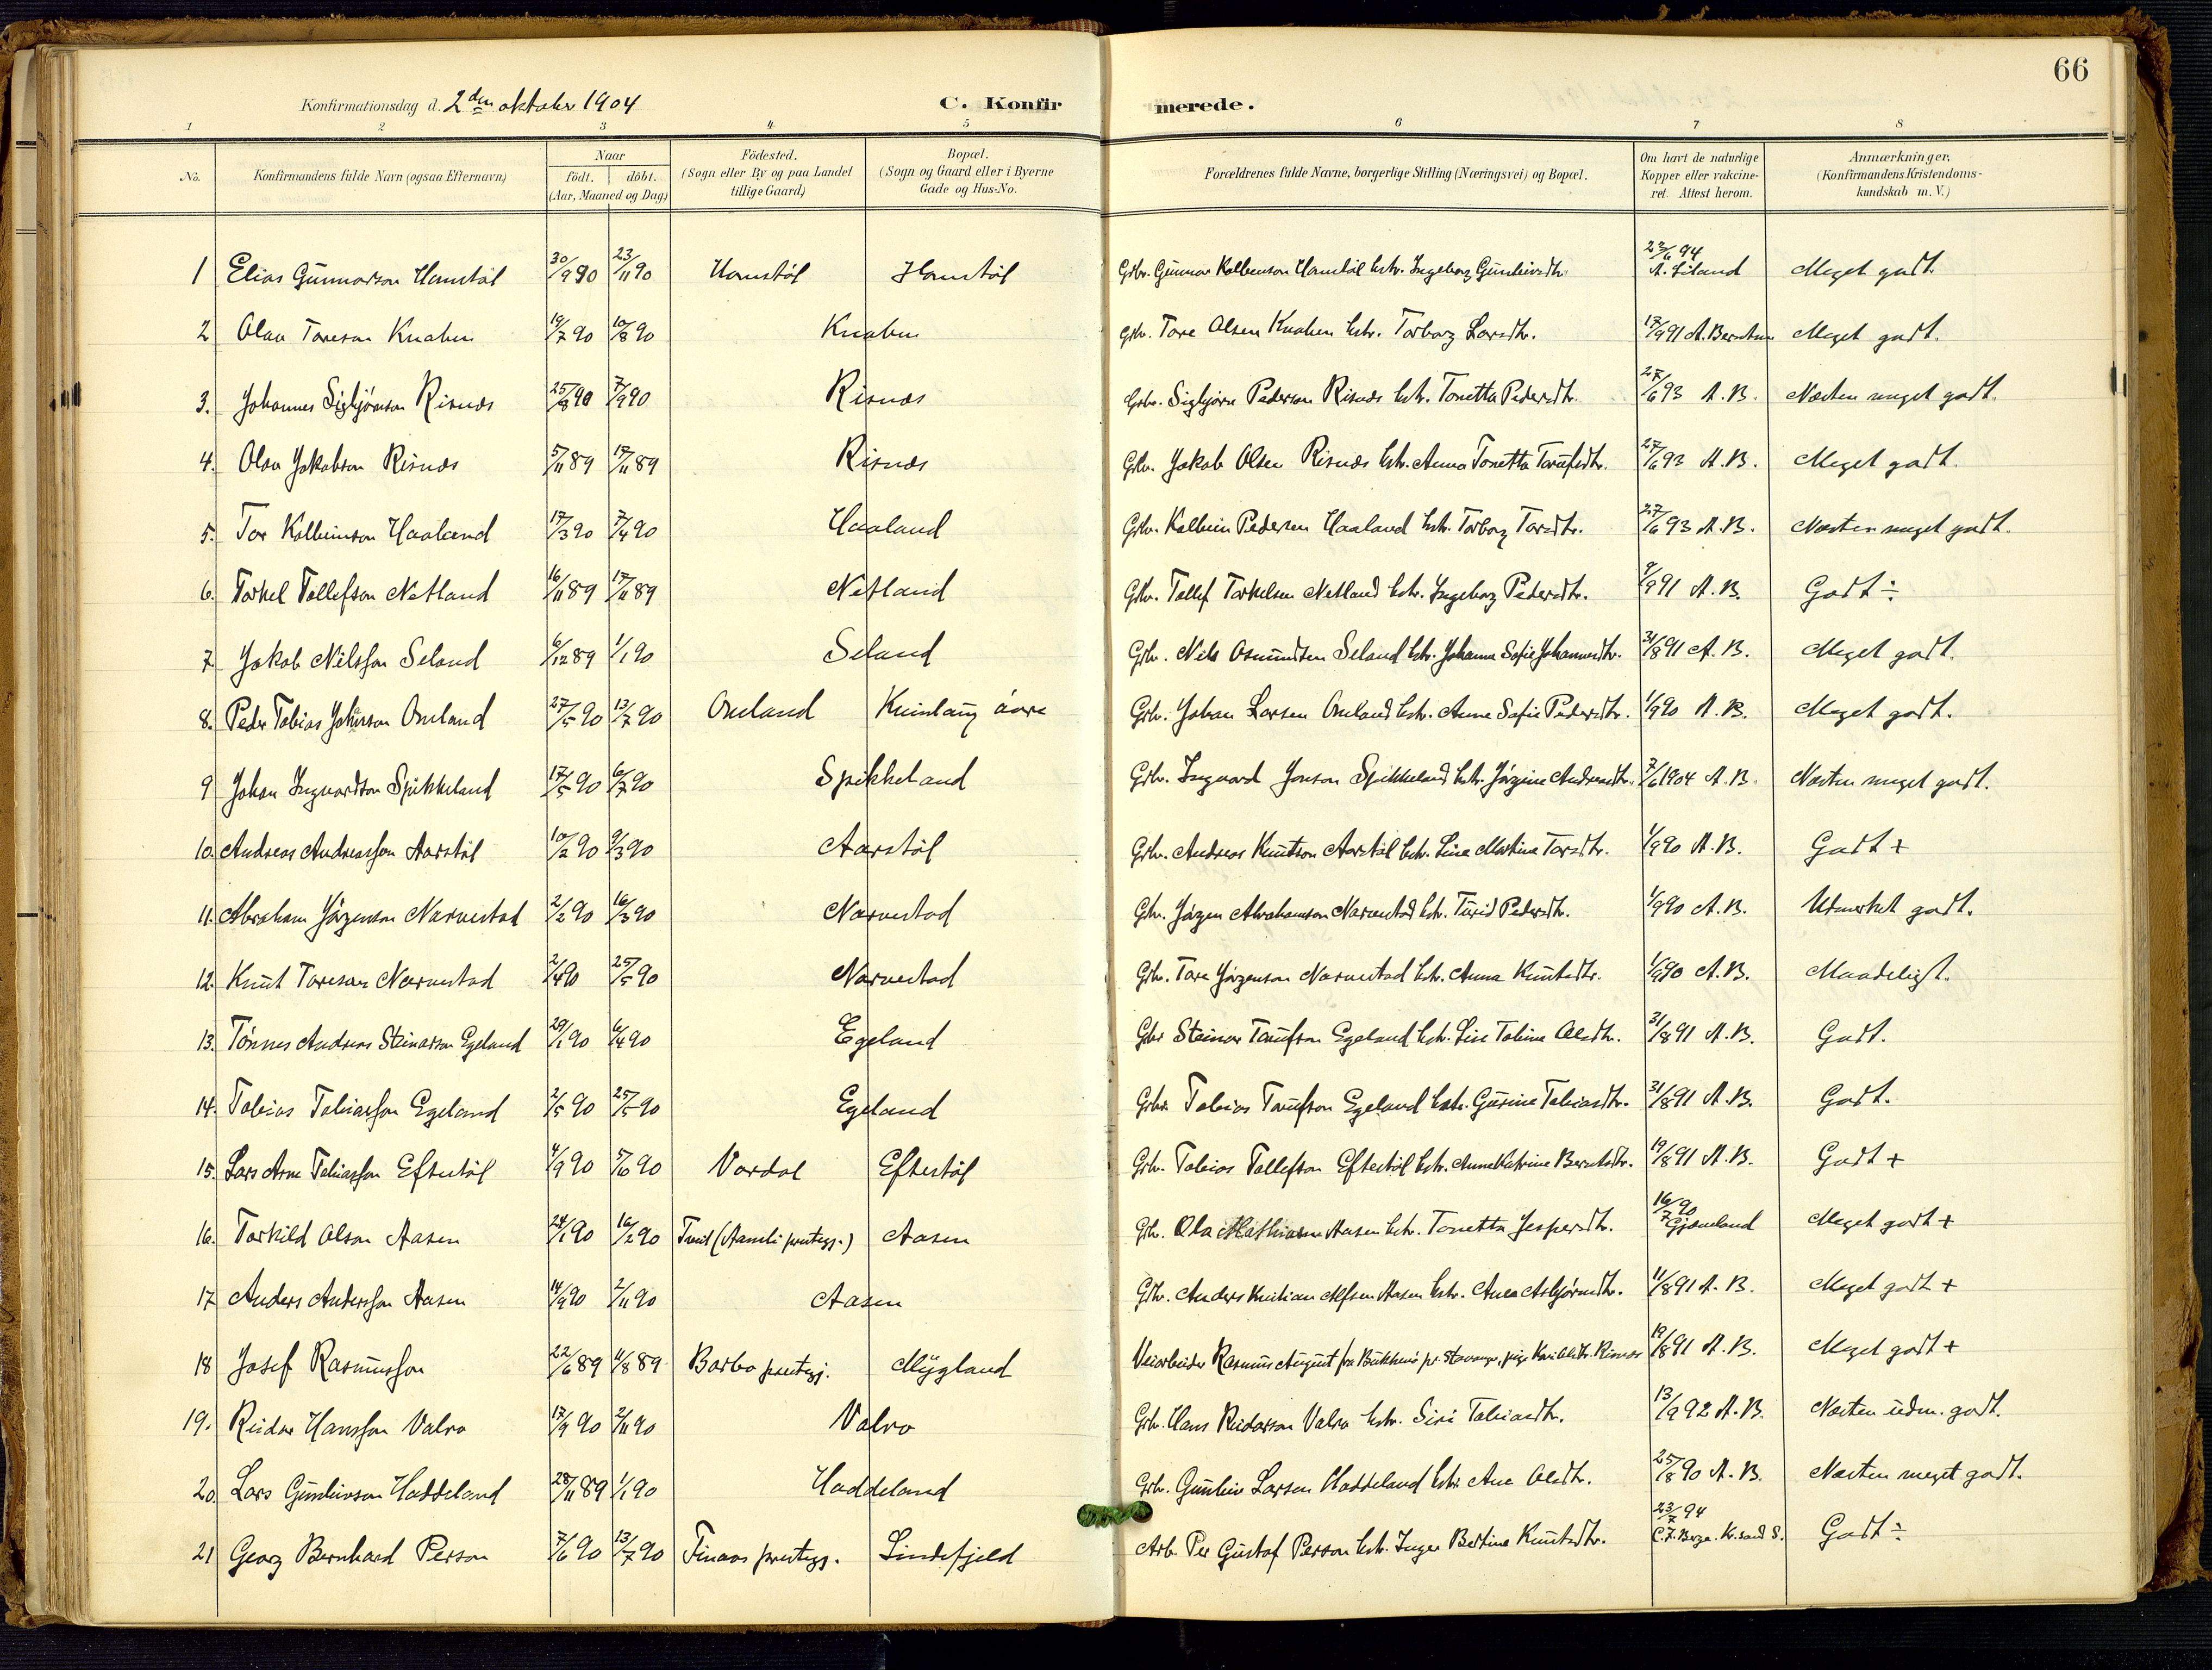 66
Konfirmationsdag d. 2den oktober 1904 C. Konfirmerede.
1 2 3 4 5 6 7 8
No. Konfirmandens fulde Navn (ogsaa Efternavn) Naar födt. döbt. (Aar, Maaned og Dag) Födested. (Sogn eller By og paa Landet tillige Gaard) Bopæl. (Sogn og Gaard eller i Byerne Gade og Hus-No. Forældrenes fulde Navne, borgerlige Stilling (Næringsvei) og Bopæl. Om havt de naturlige Kopper eller vakcineret. Attest herom. Anmærkninger. (Konfirmandens Kristendomskundskab m. V.)
1 Elias Gunnarson Homstøl 30/9 90 23/11 90 Homstøl Homstøl Grbr. Gunnar Kolbenson Homstøl hstr. Ingeborg Gunleivsdtr. 23/6 94 Meget godt.
2 Olav Toreson Knaben 19/7 90 10/8 90 Knaben Grbr. Tore Olsen Knaben hstr. Torborg Larsdtr. 17/9 91 A. Berntsen Meget godt.
3. Johannes Sigbjørnson Risnes 25/8 90 7/9 90 Risnes Grbr. Sigbjørn Pederson Risnes hstr. Tonetta Pedersdtr. 27/6 93 A. B. Næsten meget godt.
4. Olav Jakobson Risnes 5/11 89 17/11 89 Risnes Grbr. Jakob Olsen Risnes hstr. Anna Tonetta 27/6 93 A. B. Meget godt.
5. Tor Kolbeinson Haaland 17/3 90 7/4 90 Haaland Grbr. Kolbein Pedersen Haaland hstr. Torborg Torsdtr. 27/6 93 A. B. Næsten meget godt.
6. Torkel Tollefson Netland 16/11 89 17/11 89 Netland Grbr. Tollef Torkelsen Netland hstr. Ingeborg Pedersdtr. 9/9 91 A. B. Godt ÷
7. Jakob Nilsson Seland 6/12 89 1/1 90 Seland Grbr. Nils Osmundsen Seland hstr. Johanne Sofie Johannesdtr. 31/8 91 A. B. Meget godt.
8. Peder Tobias Johanson Omland 27/5 90 13/7 90 Omland Kvinlaug øvre Grbr. Johan Larsen Omland hstr. Anne Sofie Pedersdtr. 1/9 90 A. B. Meget godt.
9 Johan Ingvardson Spikkeland 17/5 90 6/7 90 Spikkeland Grbr. Ingvard Jonson Spikkeland hstr. Jørgine Andreasdtr. 7/6 1904 A. B. Næsten meget godt.
10. Andreas Andreasson Aarstøl 10/2 90 9/3 90 Aarstøl Grbr. Andreas Knutson Aarstøl hstr. Line Martine Torsdtr. 1/9 90 A. B. Godt +
11. Abraham Jørgenson Narvestad 2/2 90 16/3 90 Narvestad Grbr. Jørgen Abrahamson Narvestad hstr. Turid Pedersdtr. 1/9 90 A. B. Utmerket godt.
12. Knut Toreson Narvestad 2/4 90 25/5 90 Narvestad Grbr. Tore Jørgenson Narvestad hstr. Anna Knutsdtr. 1/9 90 A. B. Maadeligt.
13. Tønnes Andreas Steinarson Egeland 29/1 90 6/4 90 Egeland Grbr. Steinar Egeland hstr. Lise Tobine Olsdtr. 31/8 91 A. B. Godt.
14. Tobias Tobiasson Egeland 2/5 90 25/5 90 Egeland Grbr. Tobias Egeland hstr. Gurine Tobiasdtr. 31/8 91 A. B. Godt.
15. Lars Arne Tobiasson Eftestøl 4/9 90 5/10 90 Vordal Eftestøl Grbr. Tobias Tollefson Eftestøl hstr. Anne Katrine Berntsdtr. 19/8 91 A. B. Godt +
16. Torkild Olson Aasen 24/1 90 16/2 90 Tveit (Aamli prestegj.) Aasen Grbr. Ola Mathiasen Aasen hstr. Tonetta Jespersdtr. 16/7 90 Gjømland Meget godt +
17 Anders Andersson Aasen 14/9 90 2/11 90 Aasen Grbr. Anders Kristian Alfsen Aasen hstr. Anea Asbjørnsdtr. 11/8 91 A. B. Meget godt +
18 Josef Rasmusson 22/6 89 11/8 89 Barbo prestegj. Mygland Veiarbeider Rasmus August fra pr. Stavanger, pige Kari Olsdtr. Risnes 19/8 91 A. B. Meget godt +
19. Reidar Hansson Valvo 17/9 90 2/11 90 Valvo Grbr. Hans Reidarson Valvo hstr. Siri Tobiasdtr. 13/9 92 A. B. Næsten udm. godt.
20. Lars Gunleivson Haddeland 28/11 89 1/1 90 Haddeland Grbr. Gunleiv Larsen Haddeland hstr. Ane Olsdtr. 25/8 90 A. B. Næsten meget godt.
21 Georg Bernhard Person 7/6 90 13/7 90 Finaas prestegj. Lindefjeld Arb. Per Gustaf Person hstr. Inger Bertine Knutsdtr. 23/7 94 C. F. Berge. Kr. sand S. Godt ÷